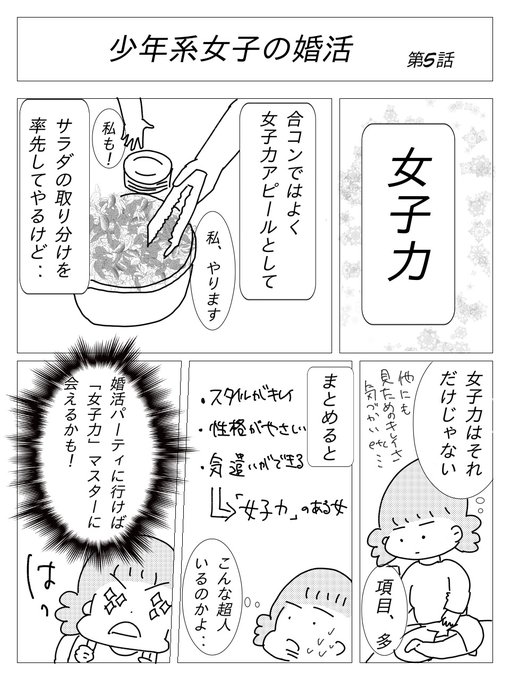 少年系女子の婚活
第5話
女子力
合コンではよく
女子力アピールとして
私、やります
私も！
サラダの取り分けを
率先してやるけど‥
女子力はそれ
だけじゃない
他にも
見ためのキレイさ
気づかい etc…
項目、多
まとめると
・スタイルがキレイ
・性格がやさしい
・気遣いができる
「女子力」のある女
こんな超人
いるのかよ‥
婚活パーティに行けば
「女子力」マスターに
会えるかも！
はっ